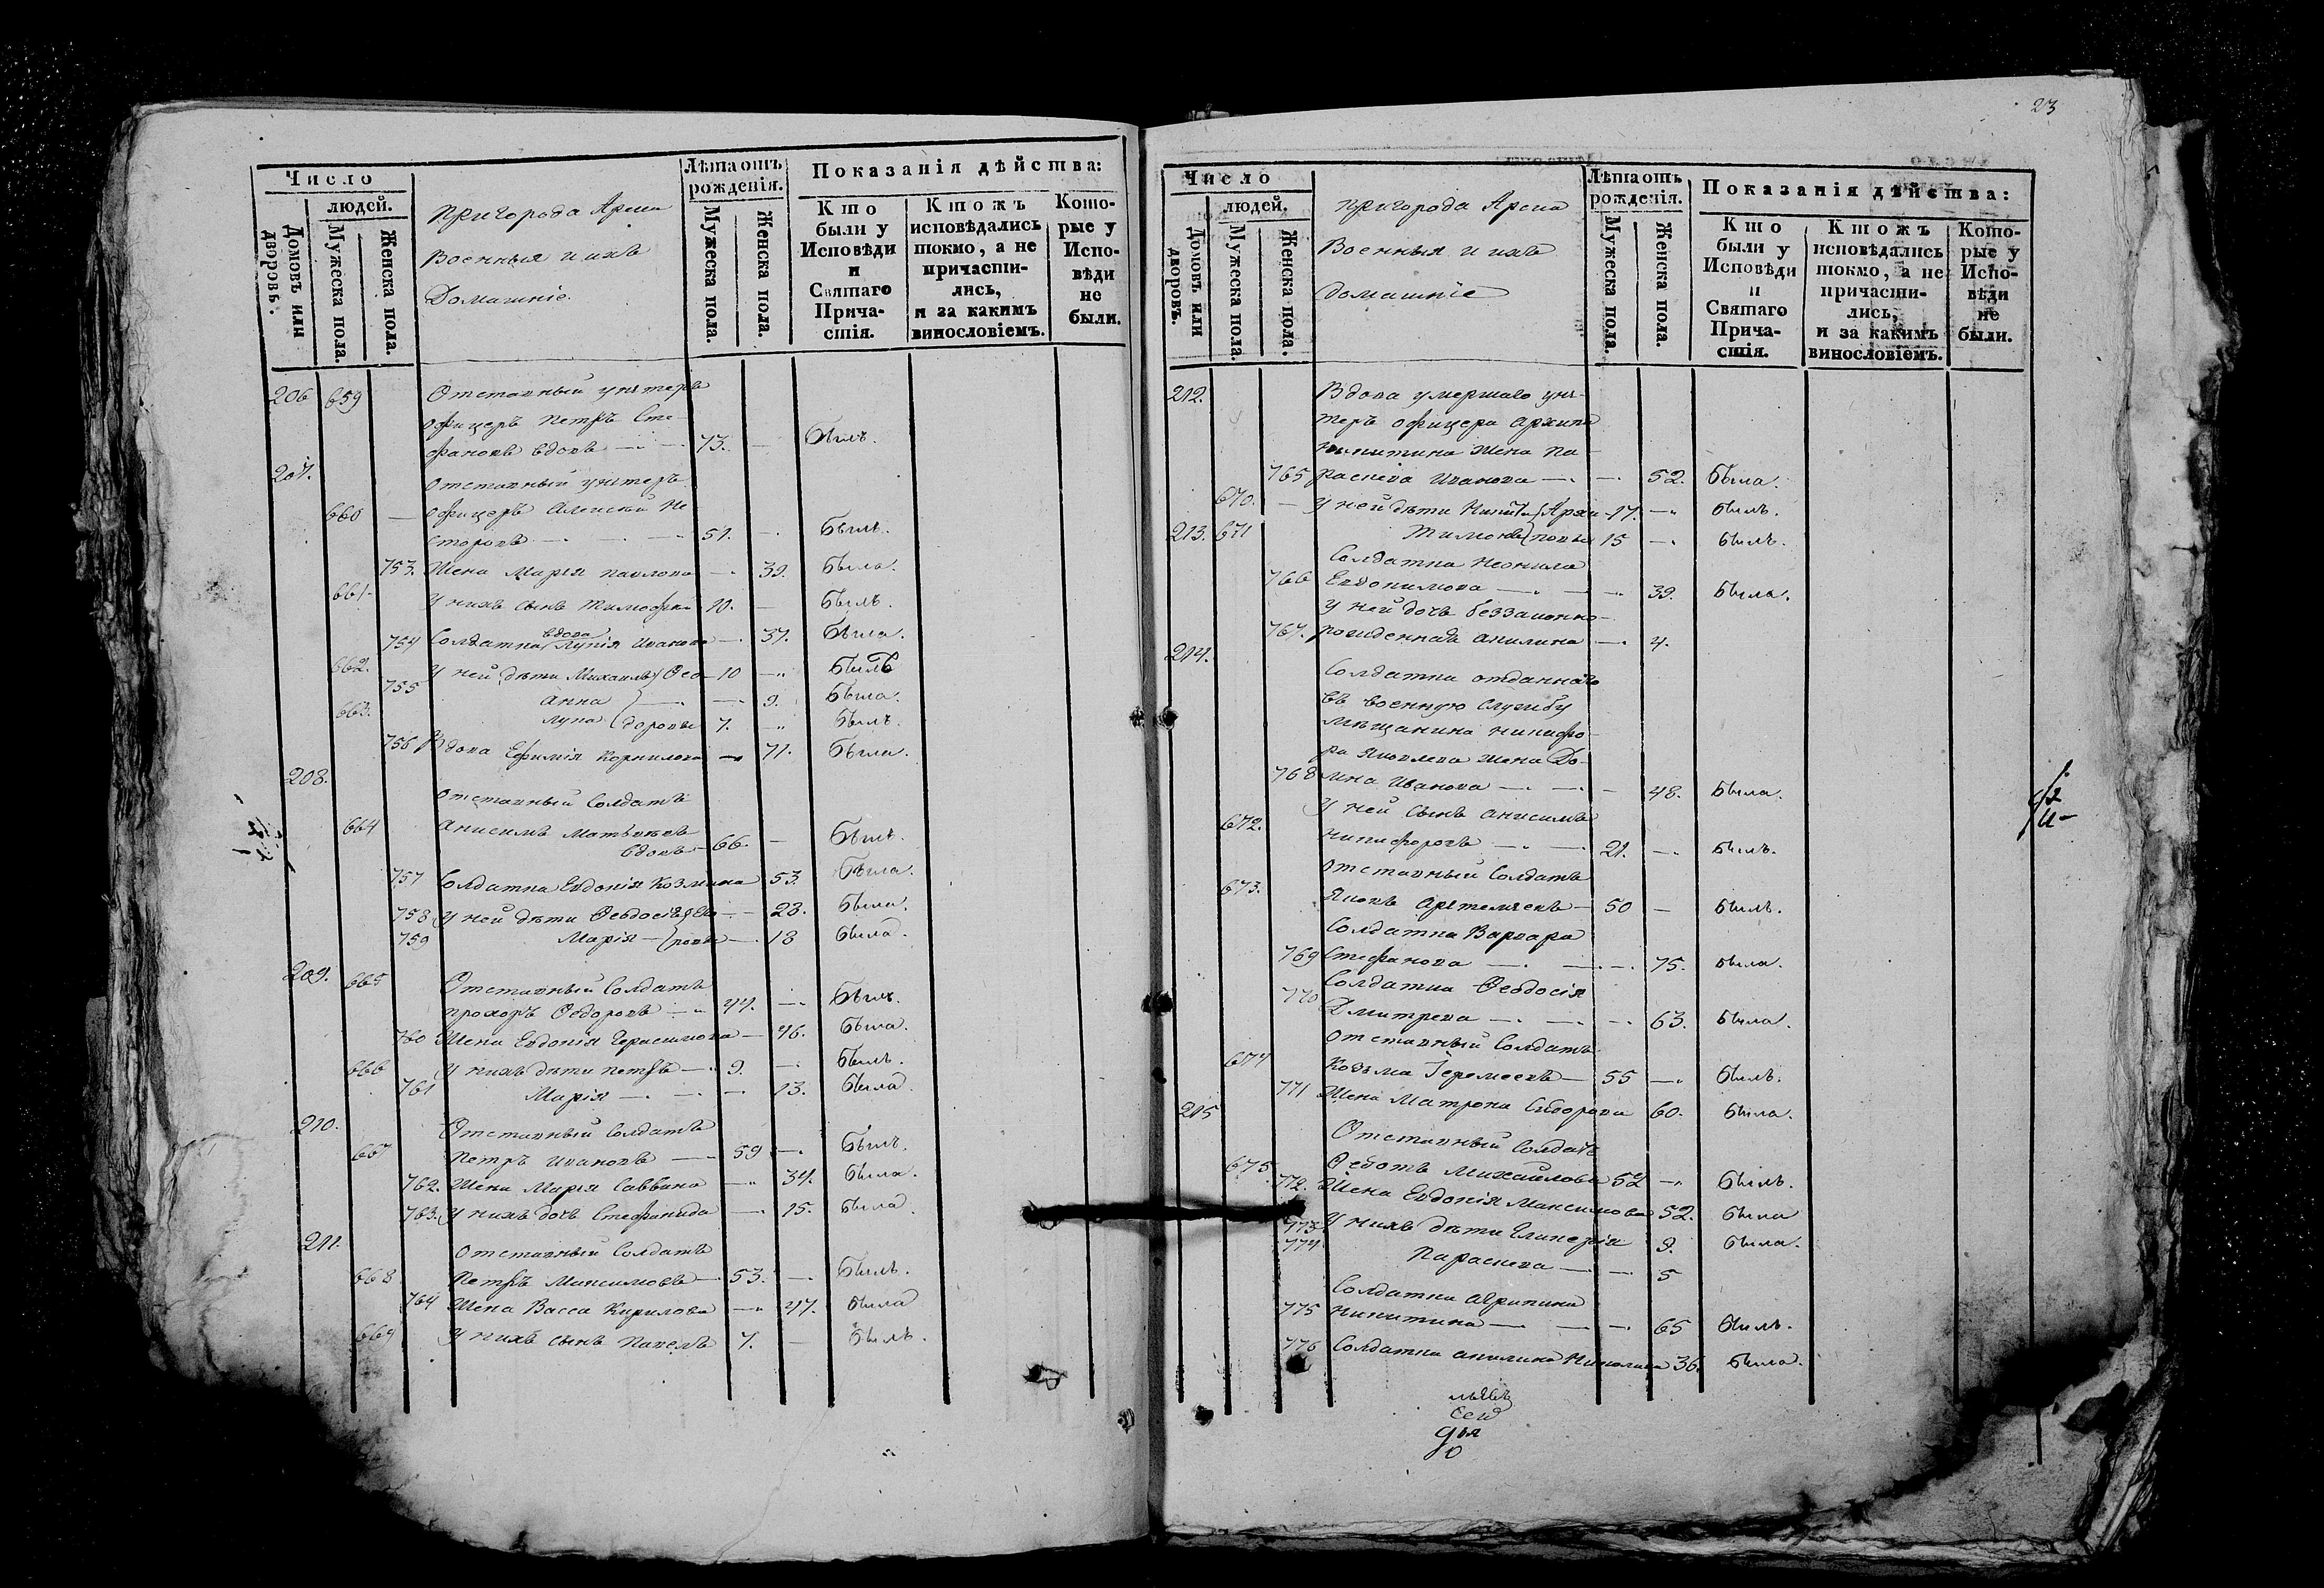 Число
людей.
Домовъ или дворовъ.
Мужеска пола.
Женска пола.
Пригорода Арска
Военныя и ихъ
Домашніе.
Лѣта отъ рожденія.
Мужеска пола.
Женска пола.
Показанія дѣйства:
Кто были у Исповѣди и Святаго Причастія.
Кто жъ исповѣдались токмо, а не причастились, и за какимъ винословіемъ.
Которые у Исповѣди не были.
206 659 Отставный унтеръ
офицеръ Петръ Сте-
фановъ вдовъ 73. былъ.
207. Отставный унтеръ
660 офицеръ Алексѣй Не
сторовъ 51. былъ.
753. Жена Марія Павлова 39. была.
661 У нихъ сынъ Тимофей 10. былъ.
754 Солдатка вдова Лукія Иванова 37. была.
662. У ней дѣти Михаилъ Ѳео 10 былъ
755 Анна 9. была.
663. Лука доровы 7. былъ.
756 Вдова Ефимія Корнилова 71. была.
208. Отставный Солдатъ
664 Анисимъ Матвѣевъ
вдовъ 66. былъ.
757 Солдатка Евдокія Козмина 53. была.
758 У ней дѣти Ѳеодосія 23. была.
759 Марія 18 была.
209. 665 Отставный Солдатъ
Прохоръ Ѳедоровъ 44. былъ.
760 Жена Евдокія Герасимова 46. была.
666 У нихъ дѣти Петръ 9. былъ.
761 Марія 13. была.
210. Отставный Солдатъ
667 Петръ Ивановъ 59 былъ.
762. Жена Марія Саввина 34. была.
763. У нихъ дочь Стефанида 15. была.
211. Отставный Солдатъ
668 Петръ Максимовъ 53. былъ.
764 Жена Васса Кирилова 47. была
669 У нихъ сынъ Павелъ 7. былъ.
23
Число
людей.
Домовъ или дворовъ.
Мужеска пола.
Женска пола.
Пригорода Арска
Военныя и ихъ
домашніе
Лѣта отъ рожденія.
Мужеска пола.
Женска пола.
Показанія дѣйства:
Кто были у Исповѣди и Святаго Причастія.
Кто жъ исповѣдались токмо, а не причастились, и за какимъ винословіемъ.
Которые у Исповѣди не были.
212. Вдова умершаго ун-
теръ офицера Архипа
Никитина Жена Па-
765 раскева Иванова 52. была.
670. У ней дѣти Никита Архи 17. былъ.
213. 671 Тимофей повы 15 былъ.
Солдатка Неонила
766 Евдокимова 39. была.
У ней дочь беззаконно
767. рожденная Акилина 4.
214. Солдатка отданнаго
въ военную службу
мѣщанина Никифо-
ра Яковлева жена До-
768 мна Иванова 48. была.
У ней сынъ Анисимъ
672. Никифоровъ 21. былъ.
Отставный Солдатъ
673. Яковъ Артемьевъ 50 былъ.
Солдатка Варвара
769 Стефанова 75. была.
Солдатка Ѳеодосія
770 Дмитрева 63. была.
Отставный Солдатъ
674 Козьма Іеремеевъ 55 былъ.
771 Жена Матрона Сидорова 60. была.
215 Отставный Солдатъ
675 Ѳедотъ Михайловъ 52 былъ.
772. Жена Евдокія Максимова 52. была
773 У нихъ дѣти Гликерія 9. была.
774 Параскева 5
Солдатка Агрипина
775 Никитина 65 былъ.
776 Солдатка Акилина Николаева 36. была.